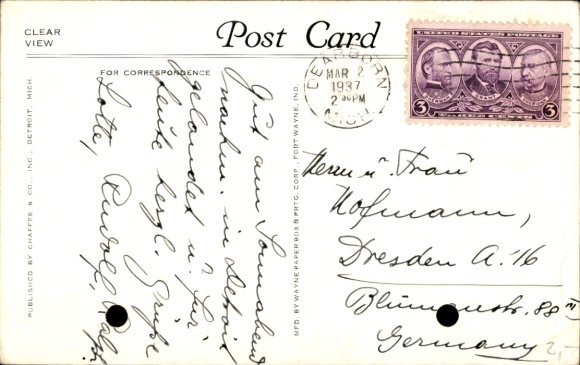 CLEAR
VIEW
Post Card
FOR CORRESPONDENCE
Gut am Sonnabend
nachm. in Detroit
gelandet u. für
heute herzl. Grüße
Lotte, Rudolf,
PUBLISHED BY CHAFFEE & CO., INC., DETROIT, MICH.
MFD. BY WAYNE PAPER BOX & PRTG. CORP., FORT WAYNE, IND.
DEARBORN
MAR 2
1937
2 30 PM
MICH.
UNITED STATES POSTAGE
SHERMAN GRANT SHERIDAN
3 3
Herrn u. Frau
Hofmann,
Dresden A. 16
Blumenstr. 88 III
Germany
2,-